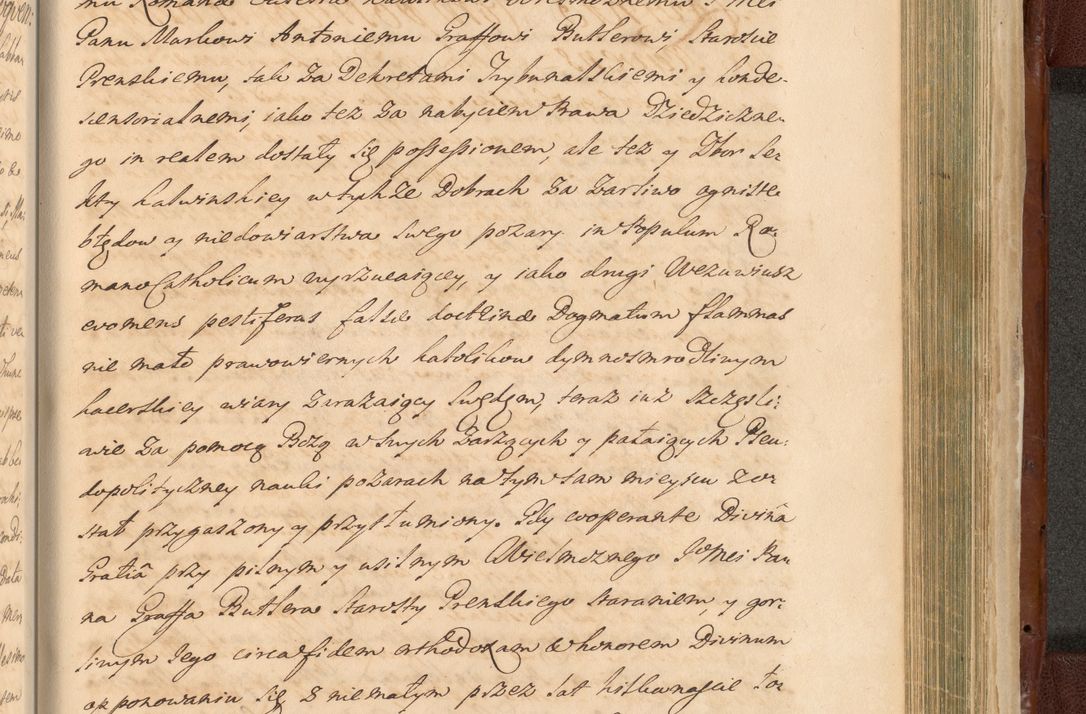 Panu Markowi Antoniemu Graffowi Butlerowi, Staroscie
Prenskiemu, tak za Dekretami Trybunalskiemi y konde-
scensorialnemi, iako też za nabyciem Prawa Dziedziczne-
go in realem dostały się possessionem, ale też y Zbor Se-
kty kalwinskiey w tychże Dobrach za żarliwo ogniste
błędow y niedowiarstwa swego pożary in Populum Ro-
mano Catholicum wyrzucaiący, y iako drugi Wezuwiusz
evomens pestiferas falsae doctrinae Dogmatum flammas
nie mało prawowiernych katolikow dymnosmrodliwym
kacerskiey wiary zarażaiący swędem, teraz iuż szczęśli-
wie za pomocą Bożą w swych żarzących y pałaiących Pseu-
dopolityczney nauki pożarach na tym sam mieyscu zo-
stał przygaszony y przytłumiony. Gdy cooperante Divinâ
Gratiâ przy pilnym y usilnym Wielmożnego JoMci Pa-
na Graffa Butlera Starosty Prenskiego staraniem, y gor-
liwym Jego circa fidem orthodoxam & honorem Divinum
opponowaniu się z niemałym przez lat kilkanascie